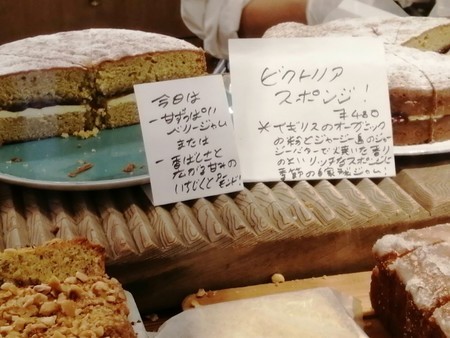 今日は
一甘ずっぱい
ベリージャム
または
一香ばしさと
なめる甘みの
いちじくと
ビクトリア
スポンジ!
¥480
* イギリスのオーガニック
の粉とジャージー島のジャー
ジーバターで焼いた香り
のよいリッチなスポンジと
季節の自家製ジャム!